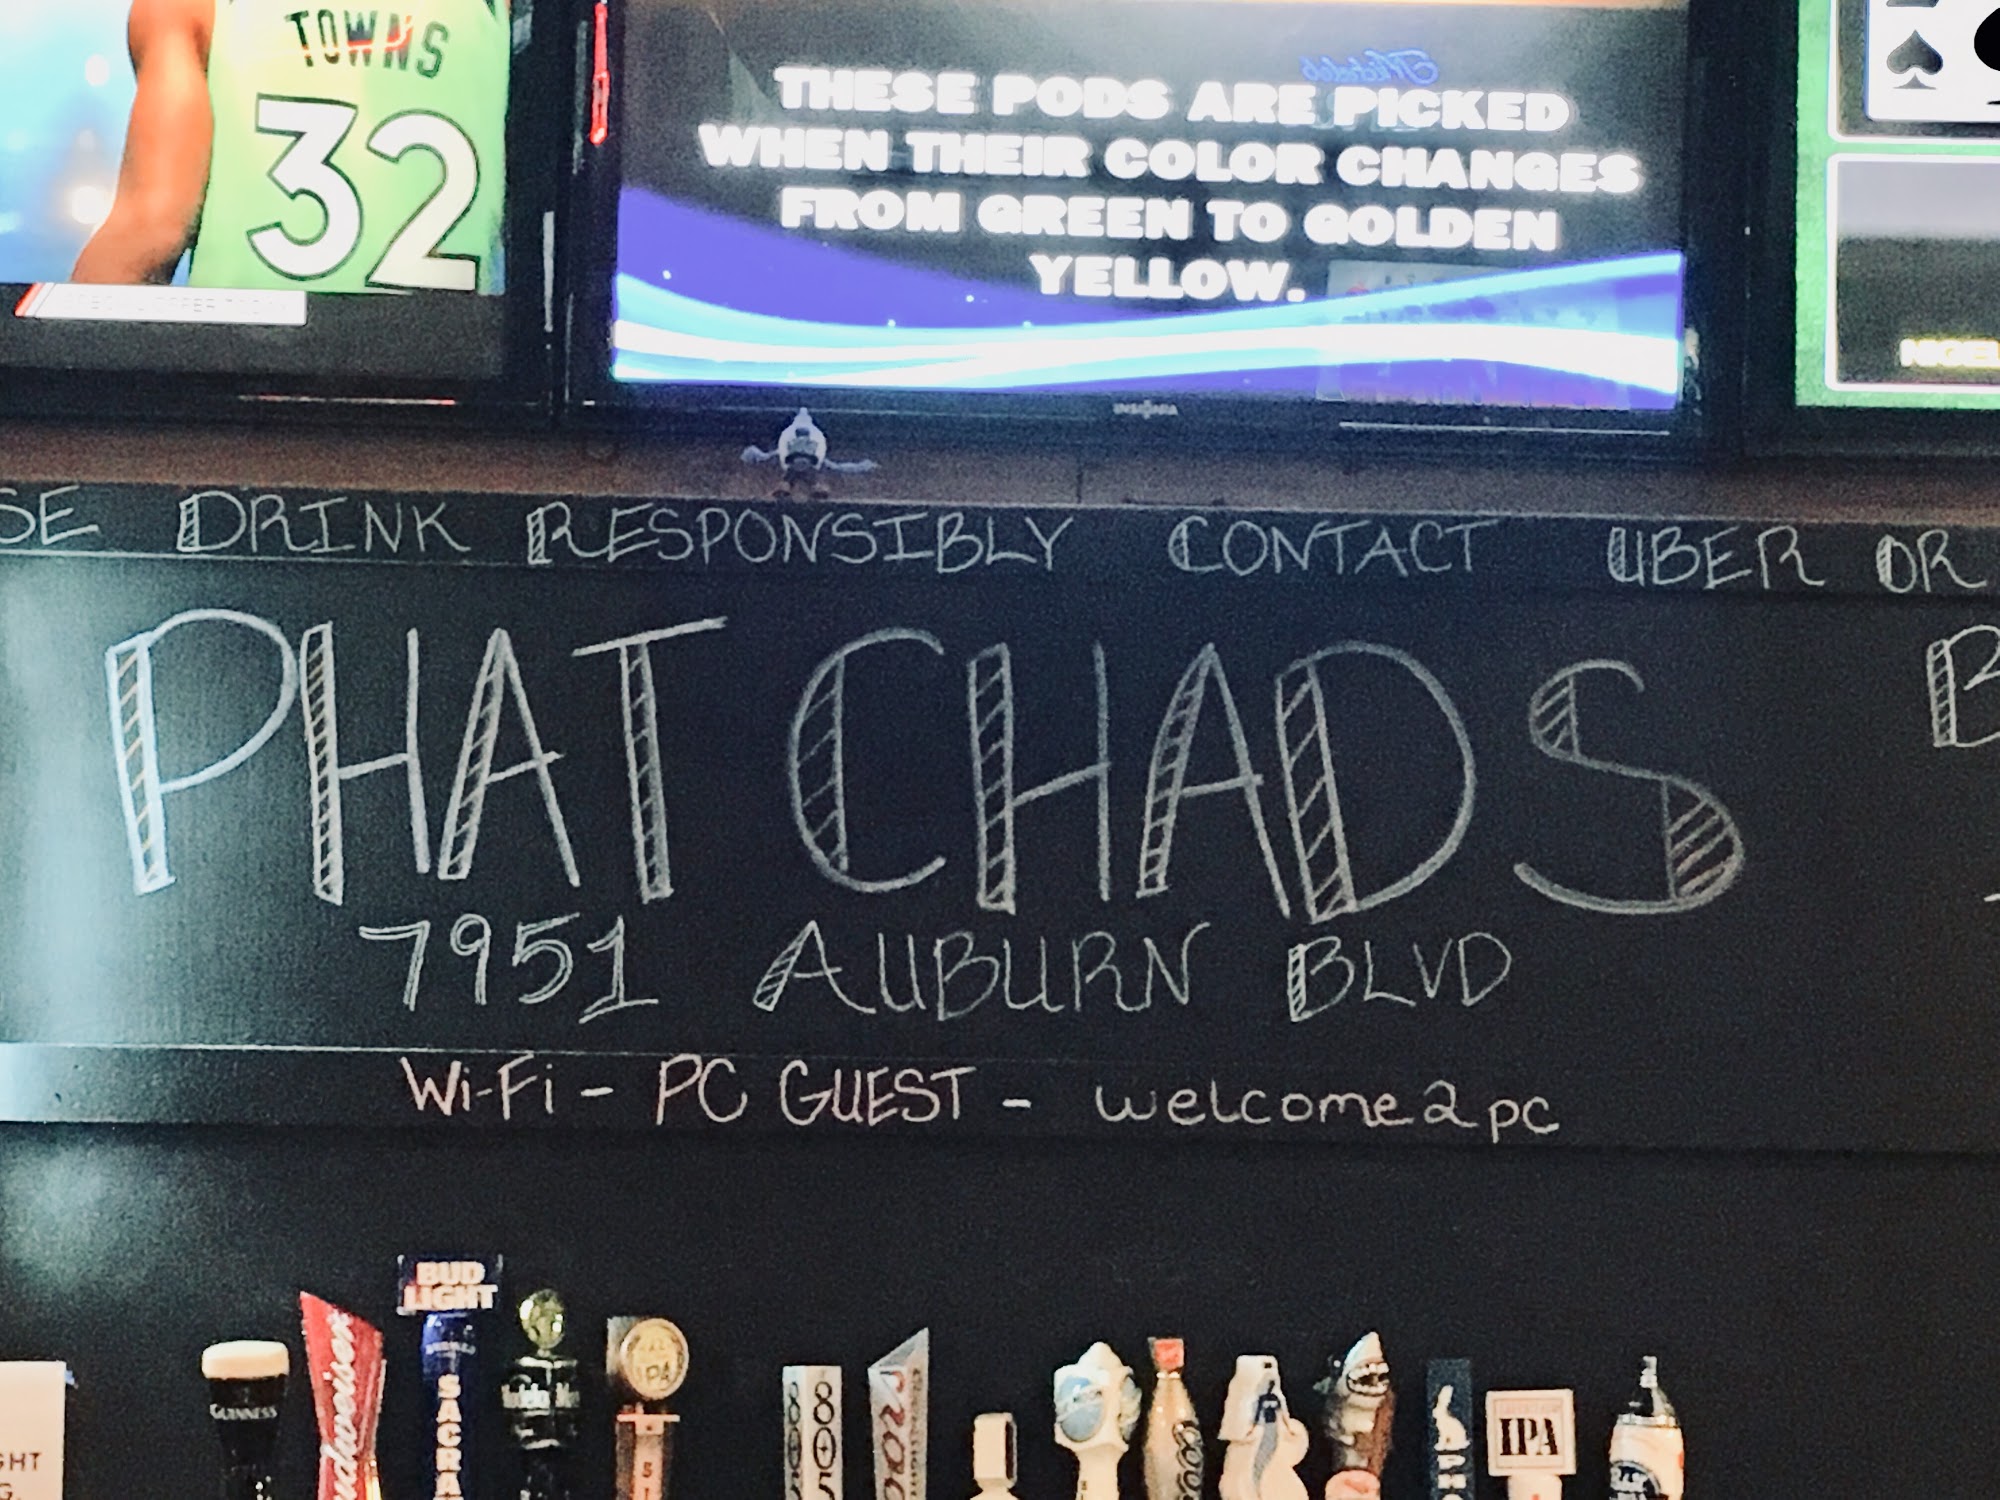 TOWNS
32
THESE PODS ARE PICKED
WHEN THEIR COLOR CHANGES
FROM GREEN TO GOLDEN
YELLOW.
INSIGNIA
SE DRINK RESPONSIBLY CONTACT UBER OR
PHAT CHADS
7951 AUBURN BLVD
Wi-Fi - PC GUEST - welcome2pc
GUINNESS
Budweiser
BUD
LIGHT
SACRA
IPA
805
805
Coors
IPA
GHT
G.